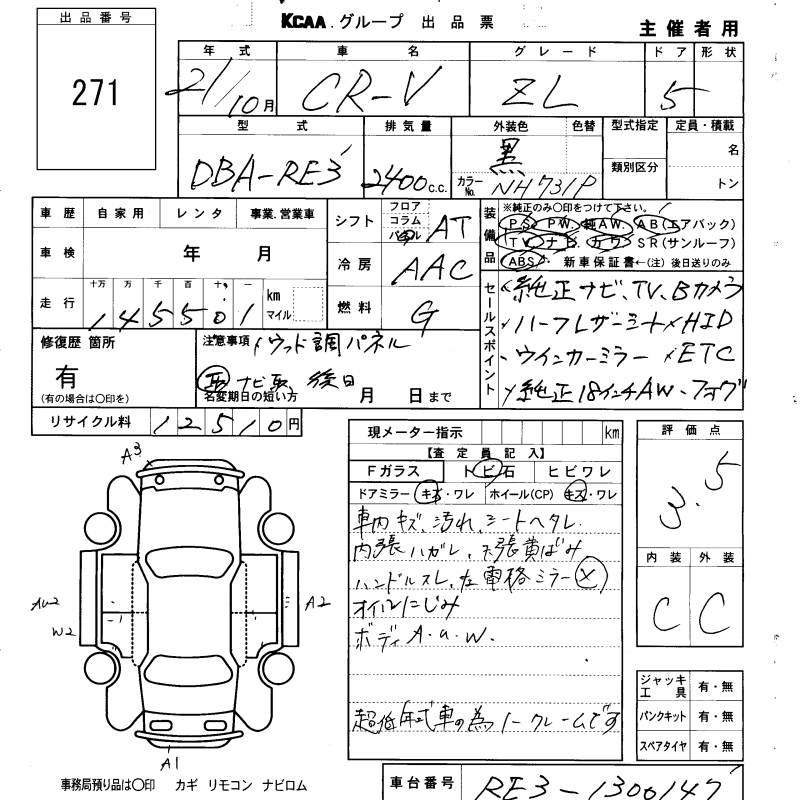 出品番号
271
KCAA.グループ 出品票
主催者用
年式 車名 グレード ドア 形状
21/10月 CR-V ZL 5
型式 排気量 外装色 色替 型式指定 定員・積載
DBA-RE3 2400c.c. 黒 名
カラーNo. NH731P 類別区分 トン
車歴 自家用 レンタ 事業.営業車
車検 年 月
走行 十万 万 千 百 十 一
145501 km マイル
シフト フロア コラム パネル AT
冷房 AAC
燃料 G
装備品 ※純正のみ〇印をつけて下さい。
PS PW. 純AW. AB(エアバック)
TV ナビ カワ SR(サンルーフ)
ABS 新車保証書←(注)後日送りのみ
セールスポイント
純正ナビ、TV、Bカメラ
ハーフレザーシート HID
ウインカーミラー ETC
純正18インチAW・フォグ
修復歴 箇所
有
(有の場合は〇印を)
注意事項 ウッド調パネル
ナビ取、後日
名変期日の短い方 月 日まで
リサイクル料 12510円
現メーター指示 km
【査定員記入】
Fガラス トビ石 ヒビワレ
ドアミラー キズ・ワレ ホイール(CP) キズ・ワレ
車内キズ、汚れ、シートヘタレ
内張ハガレ、天張黄ばみ
ハンドルスレ、左電格ミラー×
オイルにじみ
ボディA.U.W.
超低年式車の為ノークレームです
評価点
3.5
内装 外装
C C
A3
AU2
W2
A2
A1
ジャッキ工具 有・無
パンクキット 有・無
スペアタイヤ 有・無
事務局預り品は〇印 カギ リモコン ナビロム
車台番号 RE3-1300147